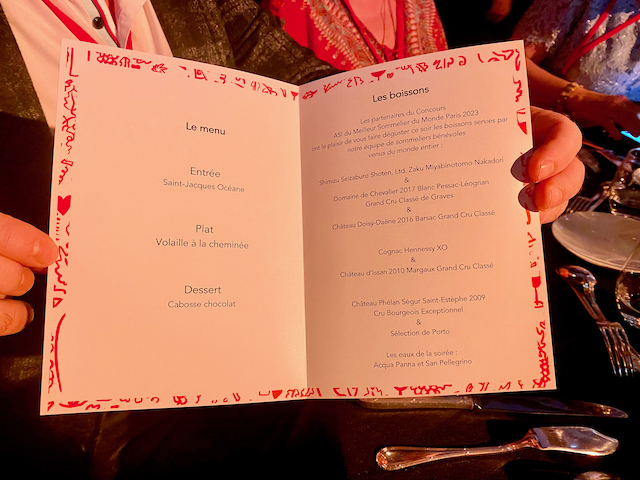 Le menu
Entrée
Saint-Jacques Océane
Plat
Volaille à la cheminée
Dessert
Cabosse chocolat
Les boissons
Les partenaires du Concours
ASI du Meilleur Sommelier du Monde Paris 2023
ont le plaisir de vous faire déguster ce soir les boissons servies par
notre équipe de sommeliers bénévoles
venus du monde entier :
Shimizu Seizaburo Shoten, Ltd. Zaku Miyabinotomo Nakadori
&
Domaine de Chevalier 2017 Blanc Pessac-Léognan
Grand Cru Classé de Graves
&
Château Doisy-Daëne 2016 Barsac Grand Cru Classé
Cognac Hennessy XO
&
Château d'Issan 2010 Margaux Grand Cru Classé
Château Phélan Ségur Saint-Estèphe 2009
Cru Bourgeois Exceptionnel
&
Sélection de Porto
Les eaux de la soirée :
Acqua Panna et San Pellegrino